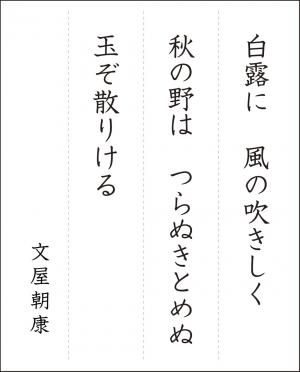 白露に　風の吹きしく
秋の野は　つらぬきとめぬ
玉ぞ散りける
文屋朝康